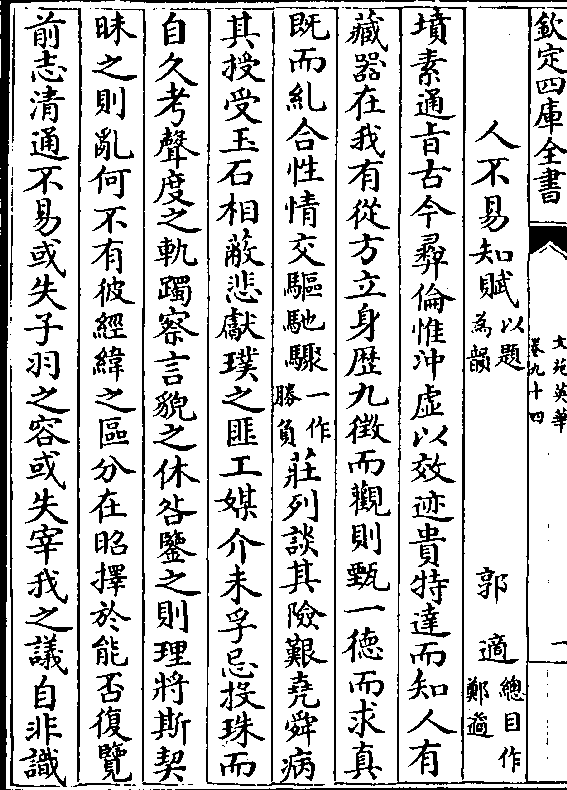 欽定四庫全書
文苑英華
卷九十四
一
人不易知賦以題為韻
郭適總目作鄭適
墳素通旨古今彝倫惟沖虛以效迹貴特達而知人有
藏器在我有從方立身歴九徵而觀則甄一德而求真
既而糺合性情交驅馳驟一作勝負莊列談其險艱堯舜病
其授受玉石相蔽悲獻璞之匪工媒介未孚忌投珠而
自久考聲度之軌躅察言貌之休咎鑒之則理將斯契
昧之則亂何不有彼經緯之區分在昭擇於能否復覽
前志清通不易或失子羽之容或失宰我之議自非識